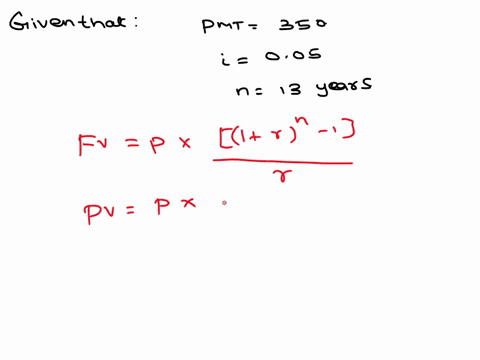 Given that: PMT = 350
i = 0.05
n = 13 years
Fv = P × [(1+r)^n -1] / r
PV = P ×